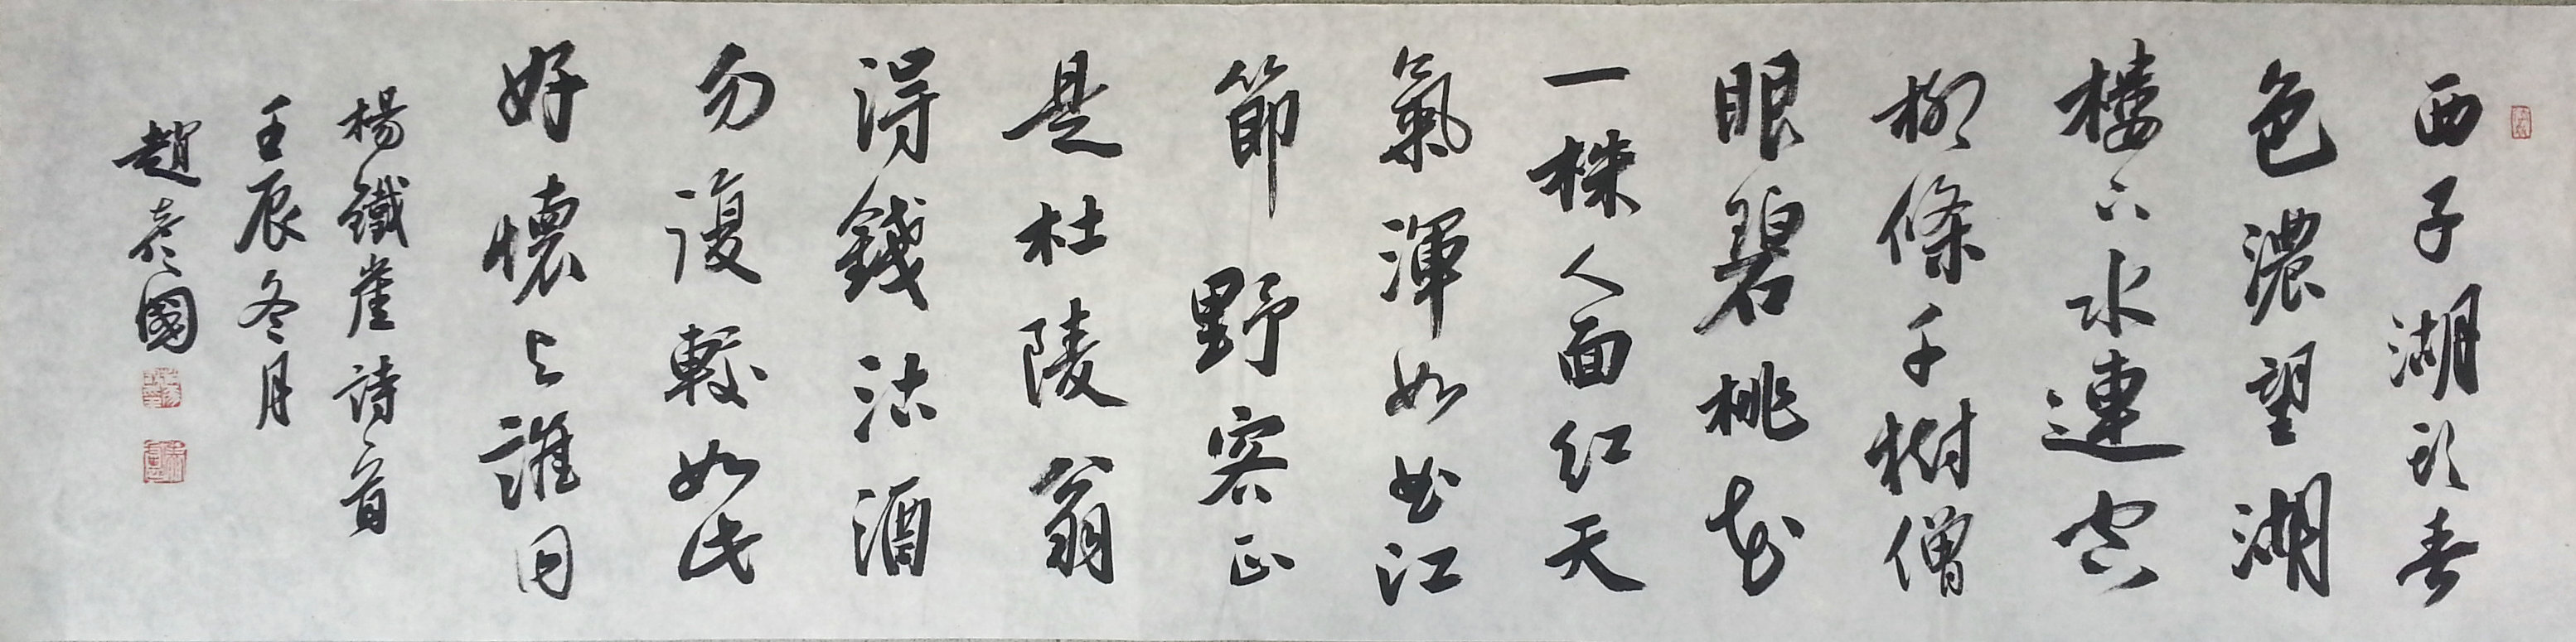 西子湖頭春
色濃望湖
樓下水連空
柳條千樹僧
眼碧桃花
一株人面紅天
氣渾如曲江
節野客正
是杜陵翁
得錢沽酒
勿復較如此
好懷與誰同
楊鐵崖詩一首
壬辰冬月
趙國